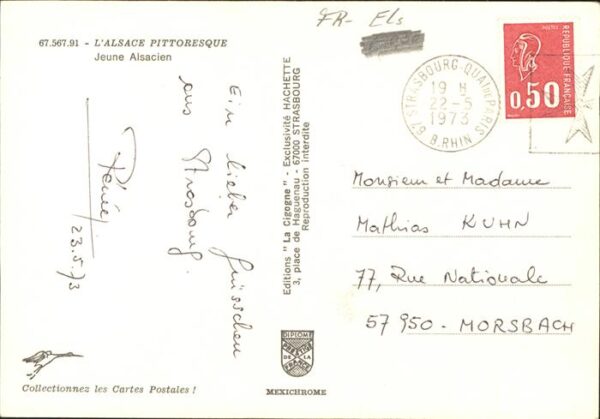 FR- Els
67.567.91 - L'ALSACE PITTORESQUE
Jeune Alsacien
Ein lieber Grüsschen
aus
Strasbourg
Renée
23.5.73
Editions "La Cigogne" - Exclusivité HACHETTE
3, place de Haguenau - 67000 STRASBOURG
Reproduction interdite
67 STRASBOURG-QUAI DE PARIS
19 H
22-5
1973
B.RHIN
POSTES
REPUBLIQUE FRANÇAISE
0,50
Monsieur et Madame
Mathias KUHN
77, Rue Nationale
57950 - MORSBACH
DIPLOME
PRESTIGE
DE LA
FRANCE
Collectionnez les Cartes Postales !
MEXICHROME